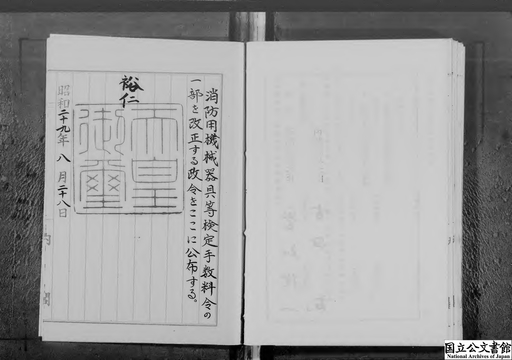 消防用機械器具等検定手数料令の
一部を改正する政令をここに公布する。
裕仁
天皇御璽
昭和二十九年八月二十八日
内閣
国立公文書館
National Archives of Japan